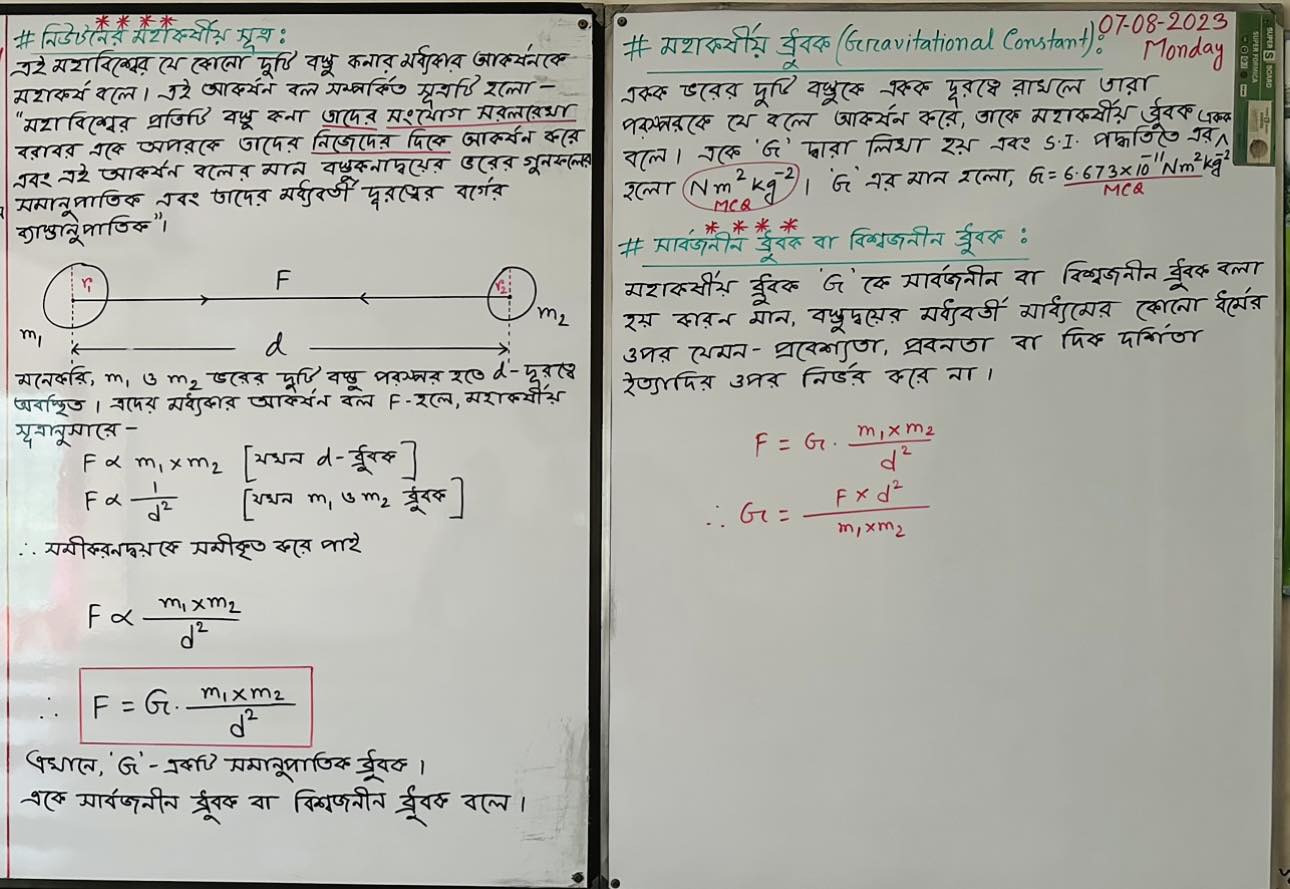 # নিউটনের মহাকর্ষীয় সূত্র :
এই মহাবিশ্বের যে কোনো দুটি বস্তু কনার মধ্যকার আকর্ষনকে
মহাকর্ষ বলে। এই আকর্ষন বল সম্পর্কিত সূত্রটি হলো –
"মহাবিশ্বের প্রতিটি বস্তু কনা তাদের সংযোগ সরলরেখা
বরাবর একে অপরকে তাদের নিজেদের দিকে আকর্ষন করে
এবং এই আকর্ষন বলের মান বস্তুকনাদ্বয়ের ভরের গুনফলের
সমানুপাতিক এবং তাদের মধ্যবর্তী দূরত্বের বর্গের
ব্যাস্তানুপাতিক"।
r₁ F r₂
m₁ m₂
d
মনেকরি, m₁ ও m₂ ভরের দুটি বস্তু পরস্পর হতে d-দূরত্বে
অবস্থিত। এদের মধ্যকার আকর্ষন বল F-হলে, মহাকর্ষীয়
সূত্রানুসারে –
F ∝ m₁ × m₂ [যখন d-ধ্রুবক]
F ∝ 1/d² [যখন m₁ ও m₂ ধ্রুবক]
∴ সমীকরনদ্বয়কে সমীকৃত করে পাই
F ∝ m₁×m₂/d²
∴ F = G. m₁×m₂/d²
এখানে, 'G' - একটি সমানুপাতিক ধ্রুবক।
একে সার্বজনীন ধ্রুবক বা বিশ্বজনীন ধ্রুবক বলে।
07-08-2023
Monday
# মহাকর্ষীয় ধ্রুবক (Gravitational Constant):
একক ভরের দুটি বস্তুকে একক দূরত্বে রাখলে তারা
পরস্পরকে যে বলে আকর্ষন করে, তাকে মহাকর্ষীয় ধ্রুবক
বলে। একে 'G' দ্বারা লিখা হয় এবং S.I. পদ্ধতিতে এর একক
হলো Nm²kg⁻²। 'G' এর মান হলো, G = 6.673×10⁻¹¹ Nm²kg⁻²
MCQ MCQ
# সার্বজনীন ধ্রুবক বা বিশ্বজনীন ধ্রুবক :
মহাকর্ষীয় ধ্রুবক 'G' কে সার্বজনীন বা বিশ্বজনীন ধ্রুবক বলা
হয় কারন মান, বস্তুদ্বয়ের মধ্যবর্তী মাধ্যমের কোনো ধর্মের
ওপর যেমন- প্রবেশ্যতা, প্রবনতা বা দিক দর্শিতা
ইত্যাদির ওপর নির্ভর করে না।
F = G. m₁×m₂/d²
∴ G = F×d²/m₁×m₂
SUPER S BOARD
SUPER FORMICA